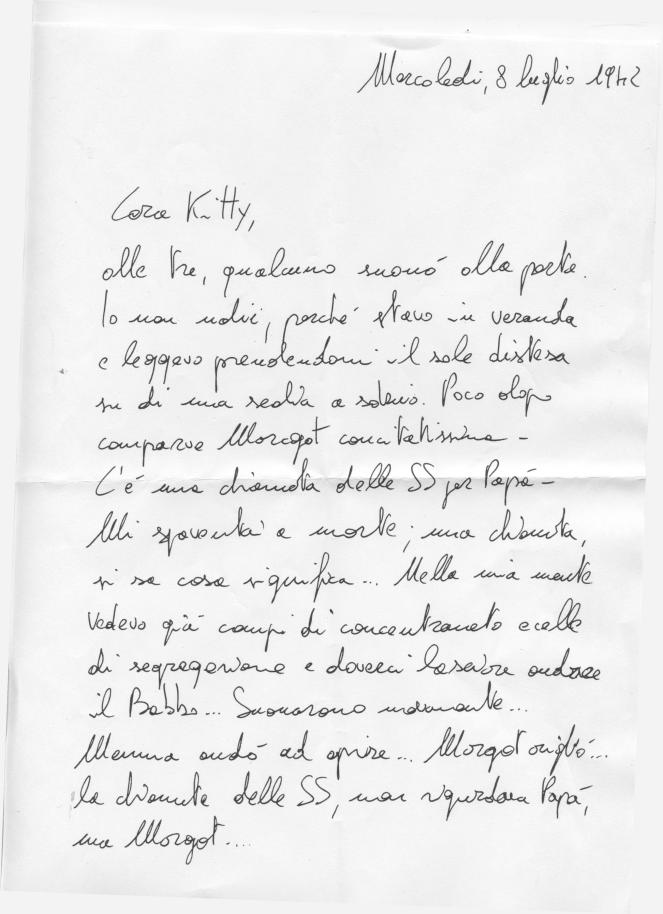 Mercoledì, 8 luglio 1942
Cara Kitty,
alle tre, qualcuno suonò alla porta.
Io non udii, perché stavo in veranda
e leggevo prendendomi il sole distesa
su di una sedia a sdraio. Poco dopo
comparve Margot concitatissima -
C'è una chiamata delle SS per Papà -
Mi spaventai a morte; una chiamata,
si sa cosa significa... Nella mia mente
vedevo già campi di concentramento e celle
di segregazione e doverci lasciare andare
il Babbo... Suonarono nuovamente...
Mamma andò ad aprire... Margot origliò...
la chiamata delle SS, non riguardava Papà,
ma Margot....